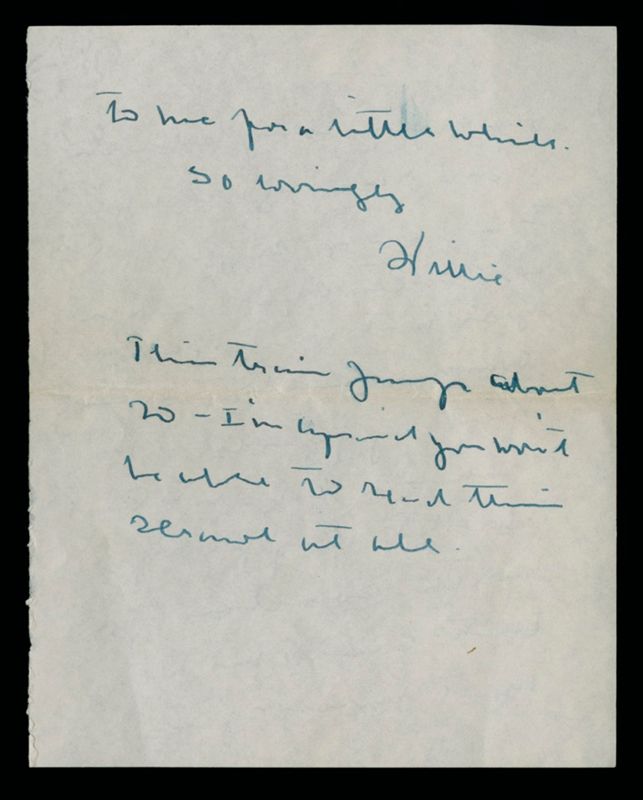 to me for a little while.
So lovingly
Willie
This train jumps about
so – I'm afraid you won't
be able to read this
scrawl at all.